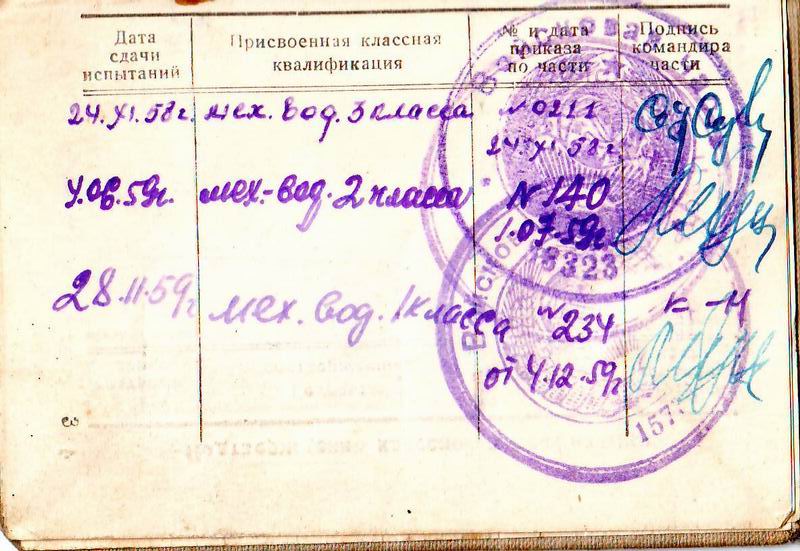 Дата
сдачи
испытаний
Присвоенная классная
квалификация
№ и дата
приказа
по части
Подпись
командира
части
24.XI.58г. мех. вод. 3 класса №0211
24.XI.58г.
4.06.59г. мех.-вод. 2 класса №140
1.07.59г.
28.11.59г мех. вод. 1 класса №234
от 4.12.59г
к-н
8323
157